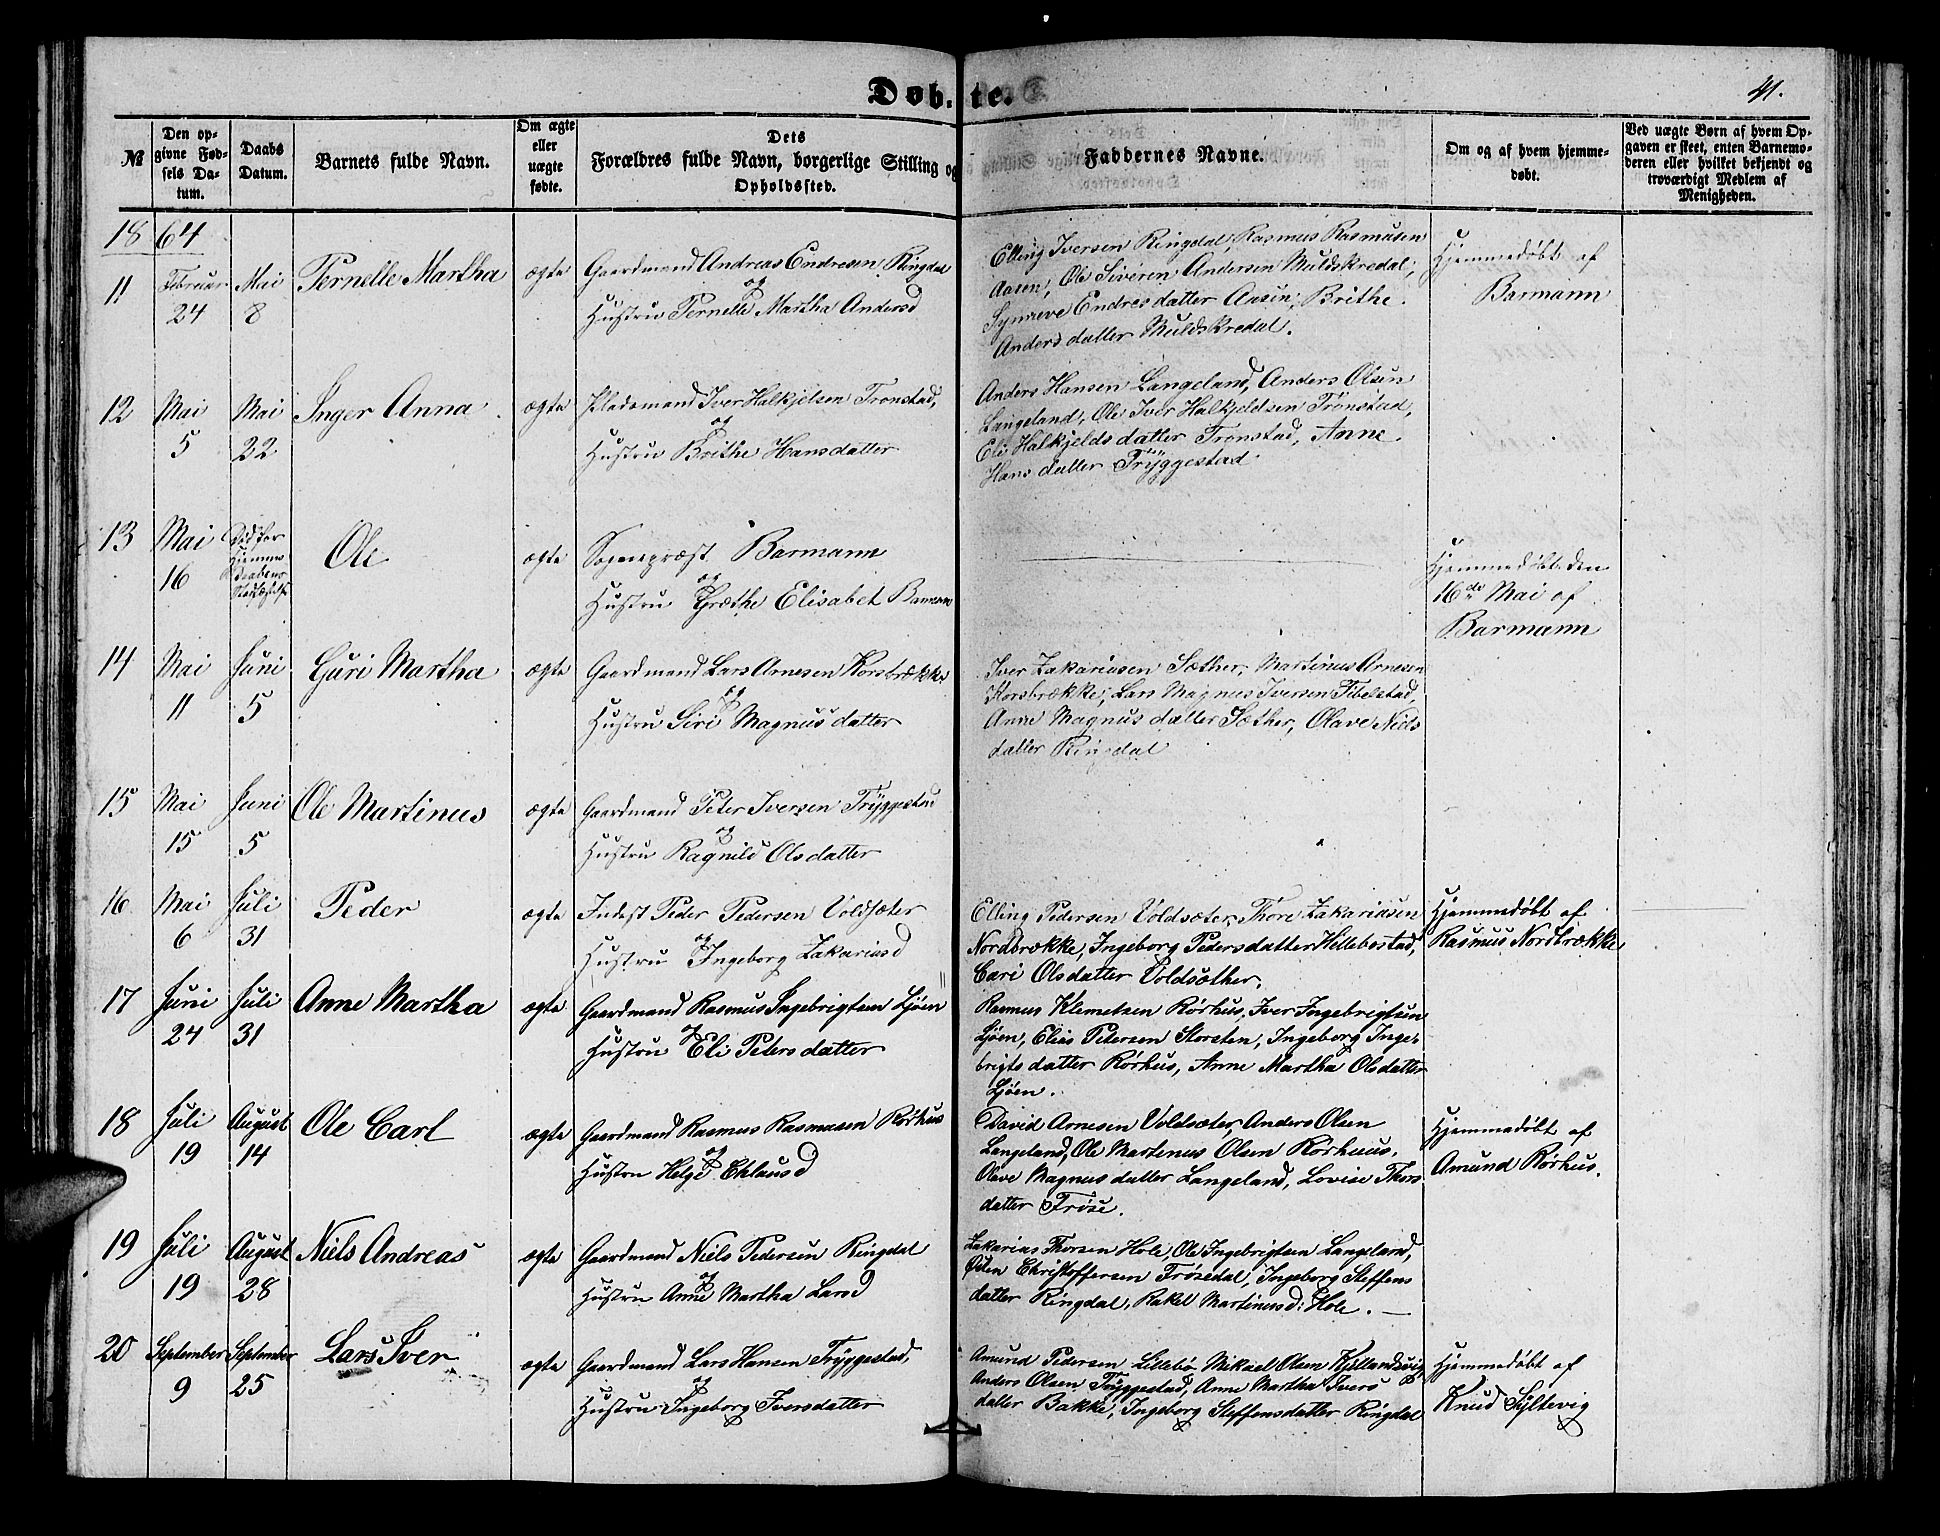 Døbte.
41.
№
Den opgivne Fødsels Datum.
Daabs Datum.
Barnets fulde Navn.
Om ægte eller uægte fødte.
Dets Forældres fulde Navn, borgerlige Stilling og Opholdssted.
Faddernes Navne.
Om og af hvem hjemmedøbt.
Ved uægte Børn af hvem Opgaven er skeet, enten Barnemoderen eller hvilket bekjendt og troværdigt Medlem af Menigheden.
1864
11 Februar 24 Mai 8 Pernelle Martha ægte
Gaardmand Andreas Endresen Ringdal
og
Hustru Pernelle Martha Andersd
Elling Iversen Ringdal, Rasmus Rasmusen
Aasen, Ole Siveren Andersen Muldskredal,
Synneve Endresdatter Aasen, Brithe
Andersdatter Muldskredal.
Hjemmedøbt af
Barmann
12 Mai 5 Mai 22 Inger Anna ægte
Pladsmand Iver Halkjelsen Tronstad,
og
Hustru Brithe Hansdatter
Anders Hansen Langeland, Anders Olsen
Langeland, Ole Iver Halkjeldsen Tronstad,
Eli Halkjeldsdatter Tronstad, Anne
Hansdatter Tryggestad
13 Mai 16 Død før Hjemmedaabens Stadfæstelse Ole ægte
Sognepræst Barmann
og
Hustru Græthe Elisabet Barmann
Hjemmedøbt den
16de Mai af
Barmann
14 Mai 11 Juni 5 Guri Martha ægte
Gaardmand Lars Arnesen Korsbrække
og
Hustru Siri Magnusdatter
Iver Zakariasen Sæther, Martinus Arnesen
Korsbrække, Lars Magnus Iversen Fibelstad,
Anne Magnusdatter Sæther, Olave Niels
datter Ringdal
15 Mai 15 Juni 5 Ole Martinus ægte
Gaardmand Peter Iversen Tryggestad
og
Hustru Ragnild Olsdatter
16 Mai 6 Juli 31 Peder ægte
Inderst Peder Pedersen Voldsæter
og
Hustru Ingeborg Zakariasd
Elling Pedersen Voldsæter, Thore Zakariasen
Nordbrække, Ingeborg Pedersdatter Hellebostad,
Cari Olsdatter Voldsæther.
Hjemmedøbt af
Rasmus Nordbrække
17 Juni 24 Juli 31 Anne Martha ægte
Gaardmand Rasmus Ingebrigtsen Ljøen
og
Hustru Eli Petersdatter
Rasmus Klemetsen Rørhus, Iver Ingebrigtsen
Ljøen, Elias Petersen Storsten, Ingeborg Inge-
brigtsdatter Rørhus, Anne Martha Olsdatter
Ljøen.
18 Juli 19 August 14 Ole Carl ægte
Gaardmand Rasmus Rasmusen Rørhus
og
Hustru Helge Eklausd
David Arnesen Voldsæter, Anders Olsen
Langeland, Ole Martinus Olsen Rørhuus,
Olave Magnusdatter Langeland, Lovise Thors
datter Frøse.
Hjemmedøbt af
Amund Rørhus.
19 Juli 19 August 28 Niels Andreas ægte
Gaardmand Niels Pedersen Ringdal
og
Hustru Anne Martha Larsd
Zakarias Thorsen Hole, Ole Ingebrigtsen Langeland,
Østen Christoffersen Frøsedal, Ingeborg Steffens
datter Ringdal, Rakel Martinusd: Hole.
20 September 9 September 25 Lars Iver ægte
Gaardmand Lars Hansen Tryggestad,
og
Hustru Ingeborg Iversdatter
Amund Pedersen Lillebø Mikael Olsen Kjellandsvig,
Anders Olsen Tryggestad, Anne Martha Ivers
datter Bakke, Ingeborg Steffensdatter Ringdal
Hjemmedøbt af
Knud Syltevig